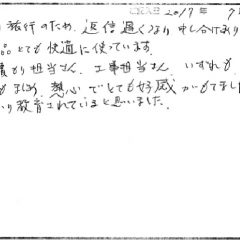 ご記入日 2017年 9
旅行のため、返信遅くなり申し訳あり
とても快適に使っています。
積もり担当さん、工事担当さん、いずれも
熱心でとても好感がもてまし
教育されていると思いました。